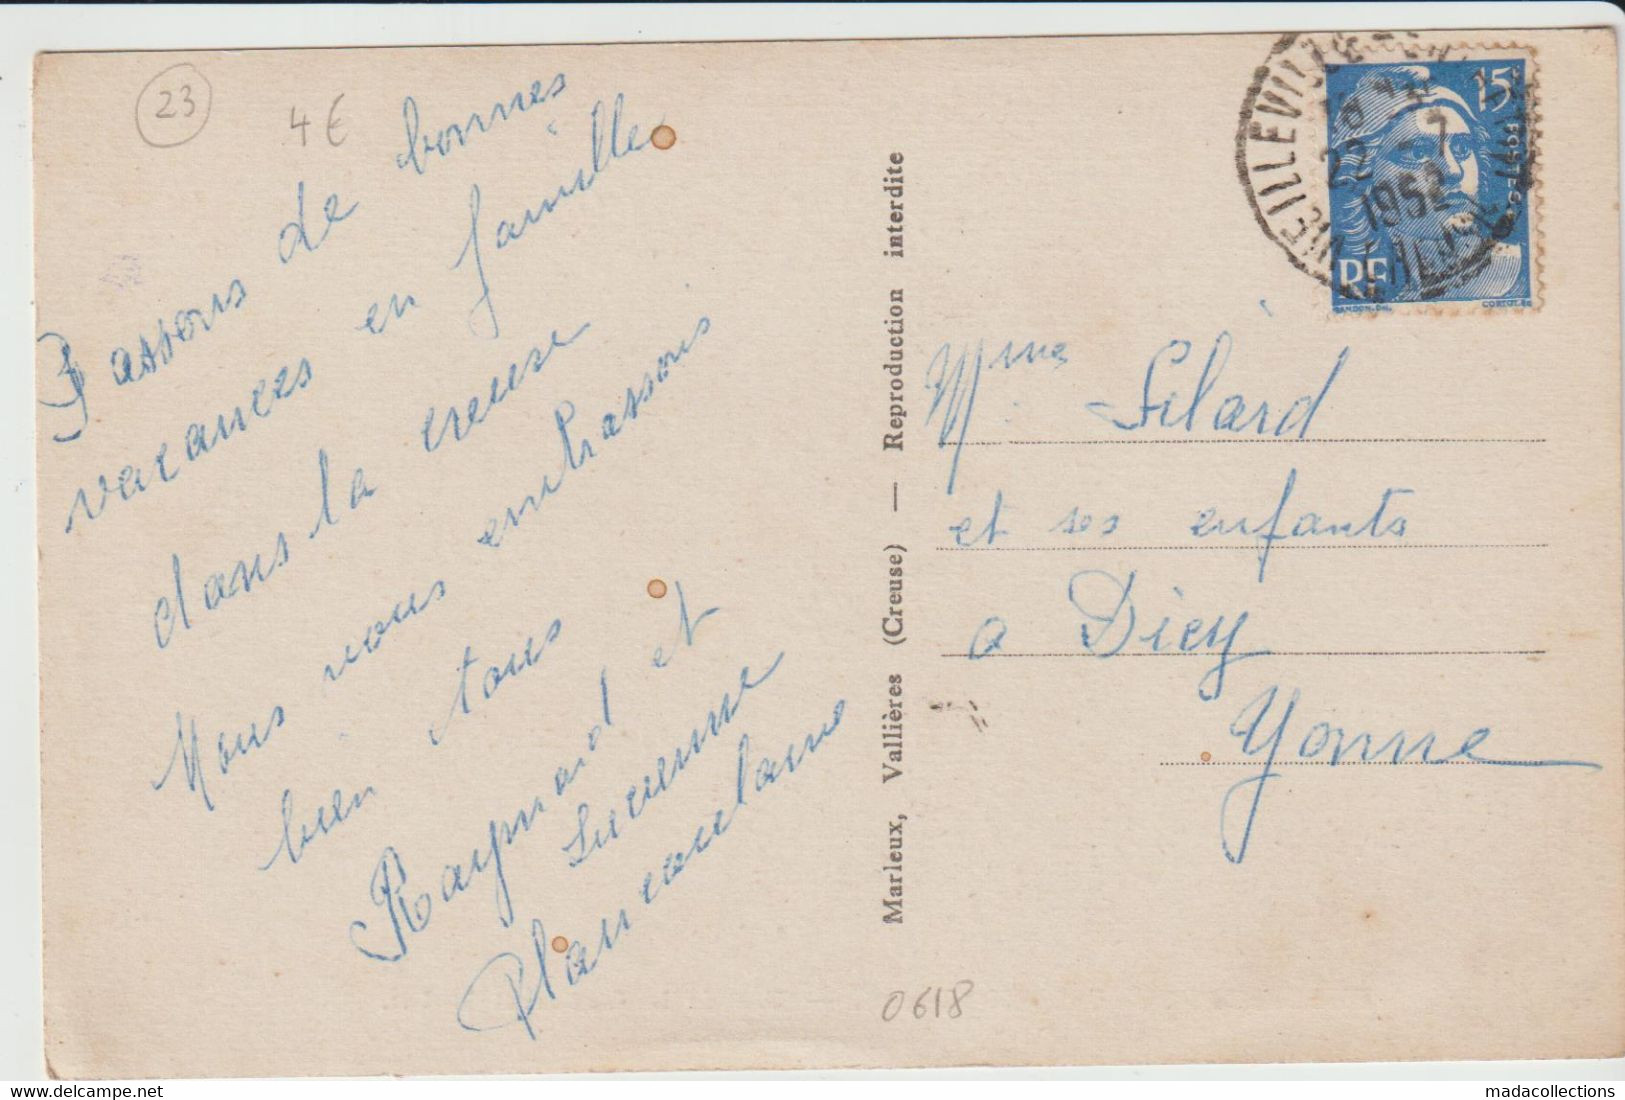 23
4€
Passons de bonnes
vacances en famille
dans la creuse
Nous vous embrassons
bien tous
Raymond et
Lucienne
Plancoulaine
Marleux, Vallières (Creuse) — Reproduction interdite
15
POSTES
RF
GANDON.DEL.
22 - 7
1952
CREUSE
Mme Filard
et ses enfants
a Dicy
Yonne
0618
delcampe.net
madacollections